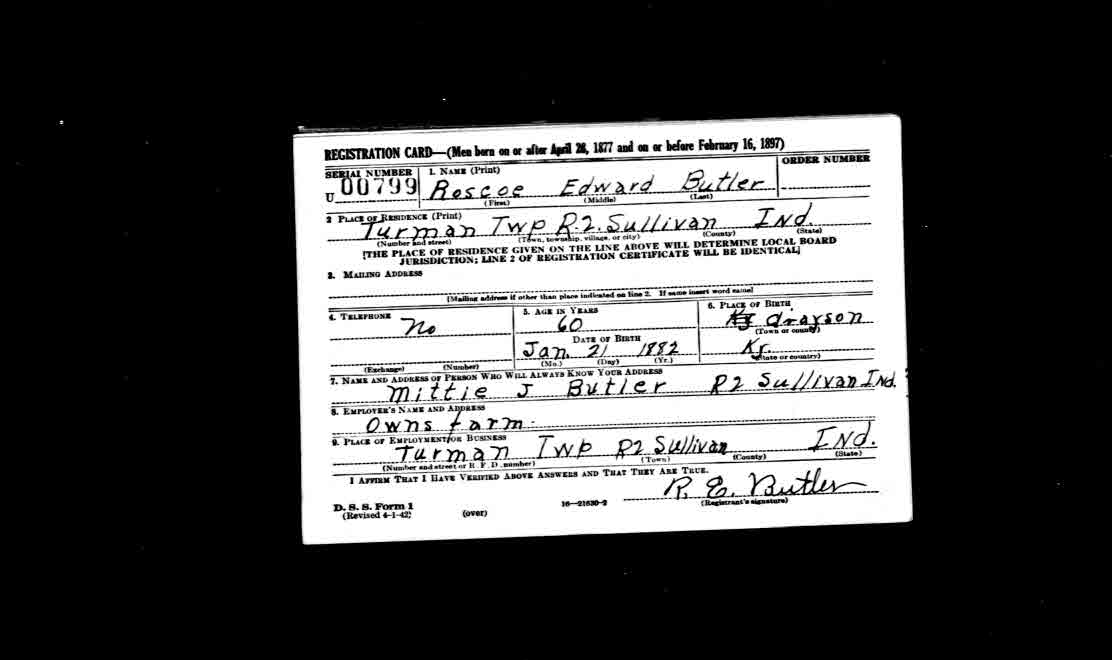 REGISTRATION CARD—(Men born on or after April 28, 1877 and on or before February 16, 1897)
SERIAL NUMBER 1. NAME (Print) ORDER NUMBER
U 00799 Roscoe Edward Butler
(First) (Middle) (Last)
2 PLACE OF RESIDENCE (Print)
Turman Twp R.2. Sullivan Ind.
(Number and street) (Town, township, village, or city) (County) (State)
[THE PLACE OF RESIDENCE GIVEN ON THE LINE ABOVE WILL DETERMINE LOCAL BOARD
JURISDICTION; LINE 2 OF REGISTRATION CERTIFICATE WILL BE IDENTICAL]
3. MAILING ADDRESS
[Mailing address if other than place indicated on line 2. If same insert word same]
4. TELEPHONE 5. AGE IN YEARS 6. PLACE OF BIRTH
No 60 Grayson
(Town or county)
DATE OF BIRTH
Jan. 21 1882 Ky.
(Exchange) (Number) (Mo.) (Day) (Yr.) (State or country)
7. NAME AND ADDRESS OF PERSON WHO WILL ALWAYS KNOW YOUR ADDRESS
Mittie J Butler R2 Sullivan Ind.
8. EMPLOYER'S NAME AND ADDRESS
Owns farm.
9. PLACE OF EMPLOYMENT OR BUSINESS
Turman Twp R2 Sullivan Ind.
(Number and street or R. F. D. number) (Town) (County) (State)
I AFFIRM THAT I HAVE VERIFIED ABOVE ANSWERS AND THAT THEY ARE TRUE.
R. E. Butler
D. S. S. Form 1 16—21630-2 (Registrant's signature)
(Revised 4-1-42) (over)